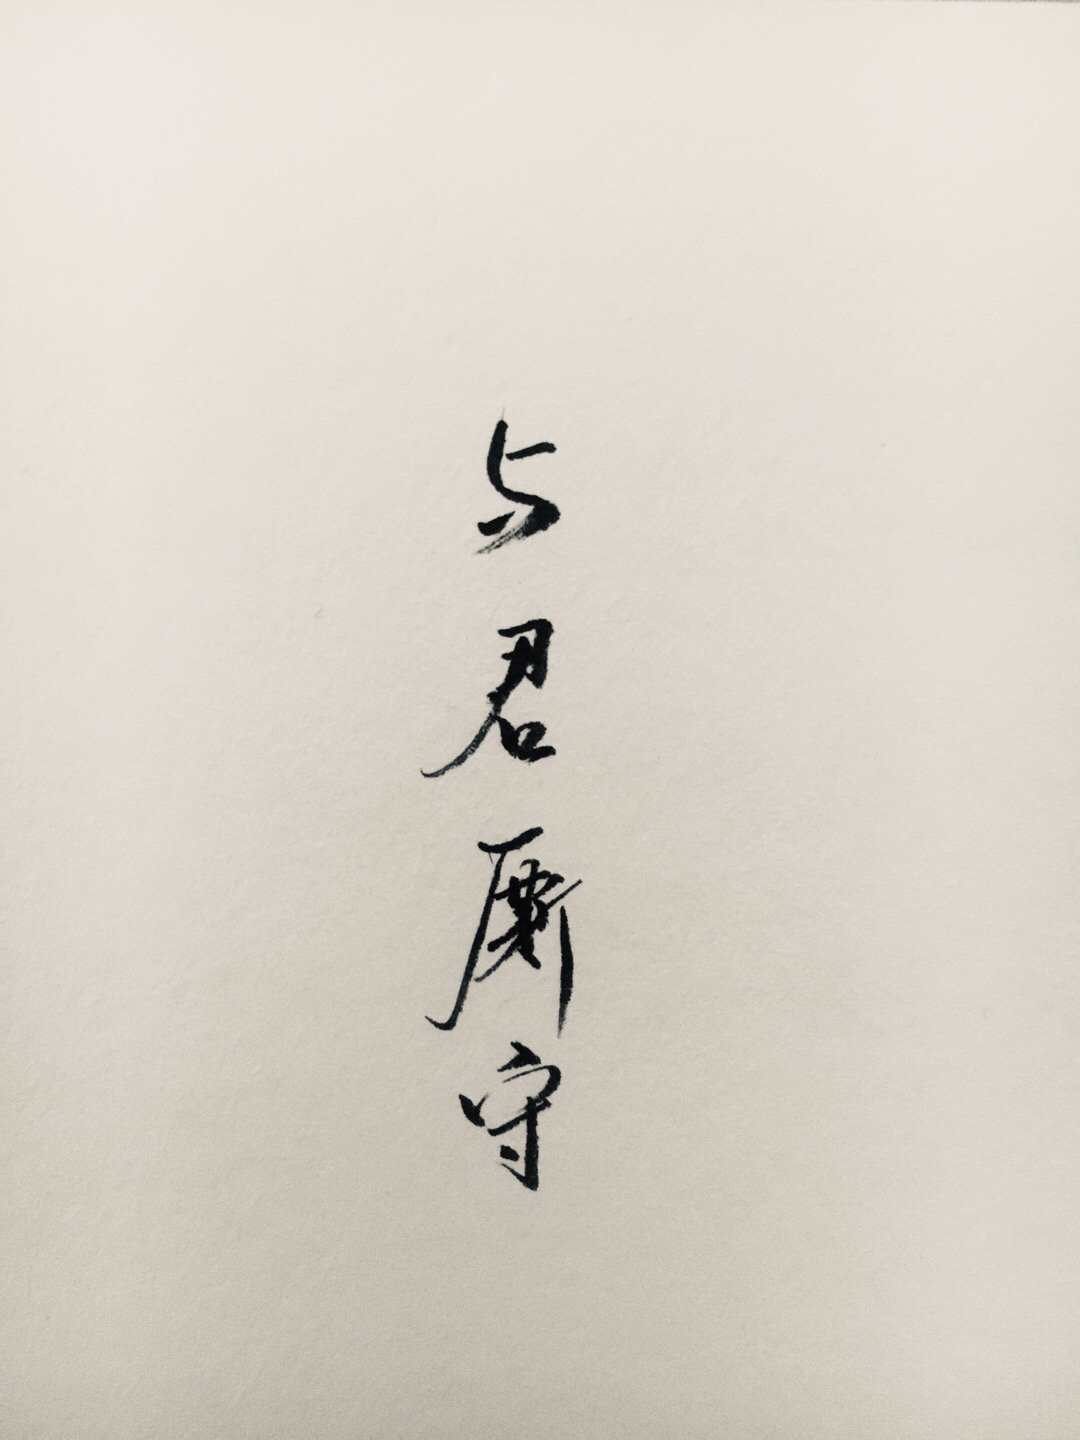 与君厮守